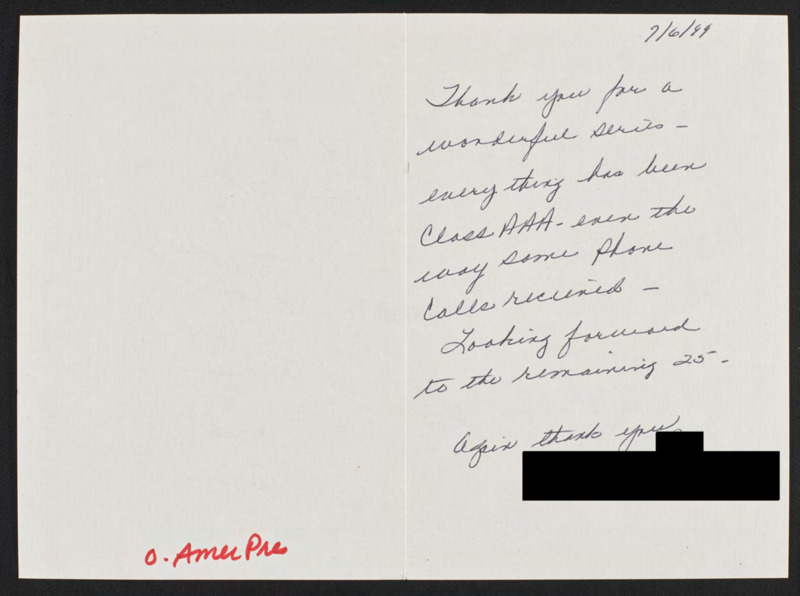 7/6/99
Thank you for a
wonderful series -
everything has been
Class AAA - even the
way some phone
Calls recieved -
Looking forward
to the remaining 25 -
Again thank you
O. Amer Pres